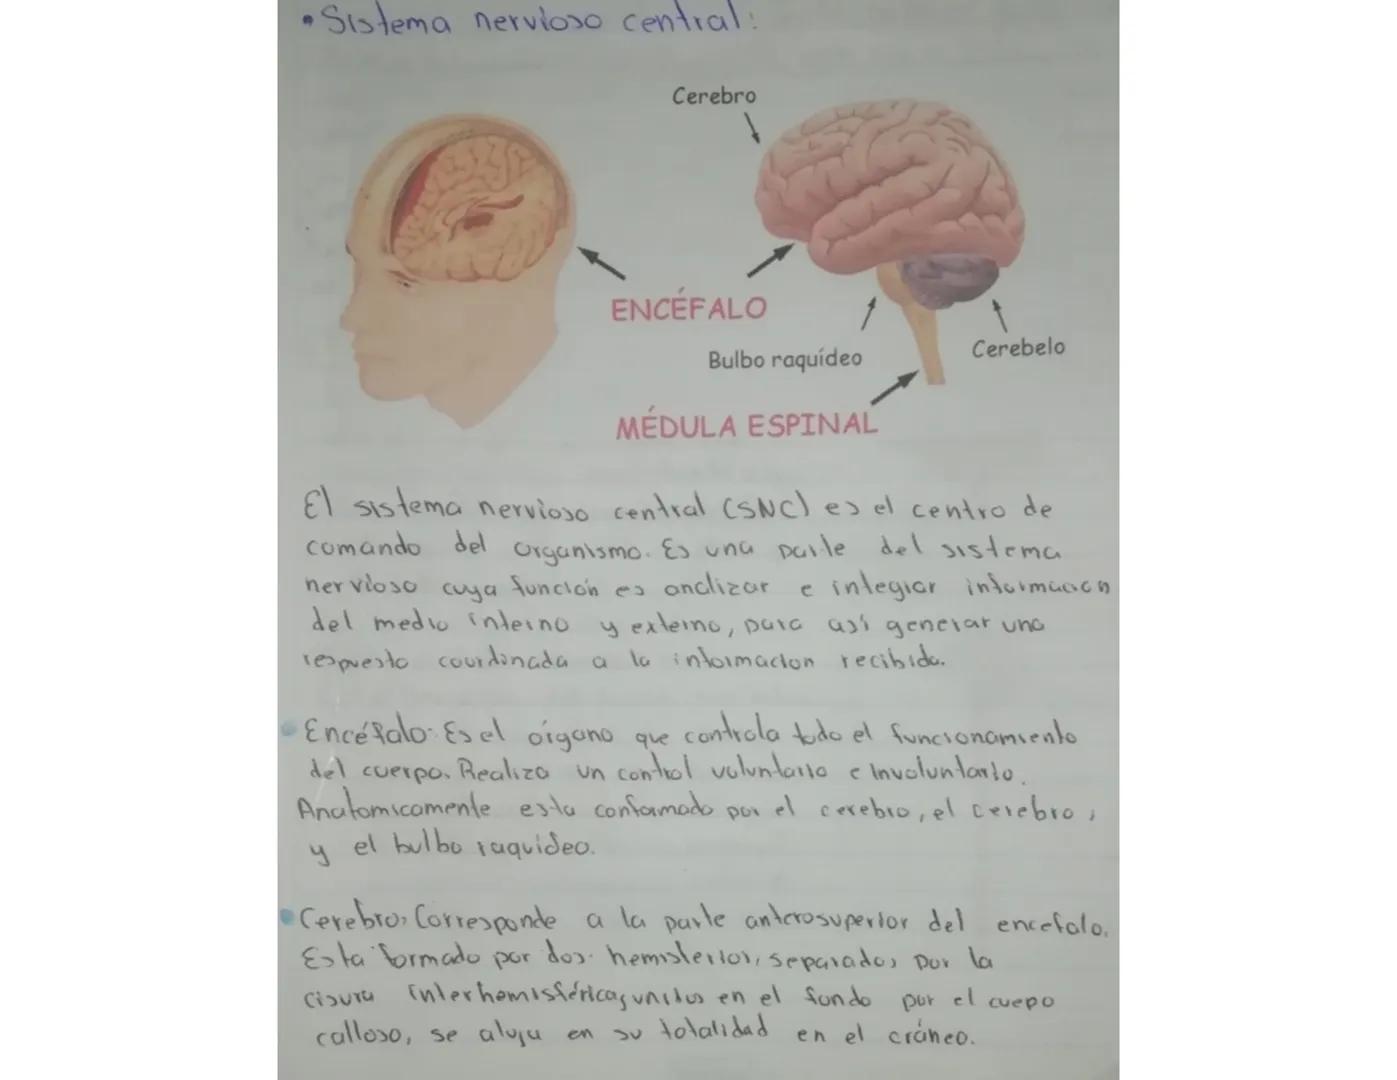 • Sistema nervioso central:
Cerebro
ENCÉFALO
Bulbo raquídeo
Cerebelo
MÉDULA ESPINAL
El sistema nervioso central (SNC) es el centro de
comando del organismo. Es una parte del sistema
nervioso cuya función es analizar e integrar información
del medio interno y externo, para así generar una
respuesta coordinada a la informacion recibida.
• Encéfalo: Es el órgano que controla todo el funcionamiento
del cuerpo. Realiza un control voluntario e Involuntario.
Anatomicamente esta conformado por el cerebro, el cerebro,
y el bulbo raquideo.
• Cerebro: Corresponde a la parte anterosuperior del encefalo.
Esta formado por dos hemisferios, separados por la
cisura interhemisférica, unidos en el fondo por el cuepo
calloso, se aloja en su totalidad en el cráneo.